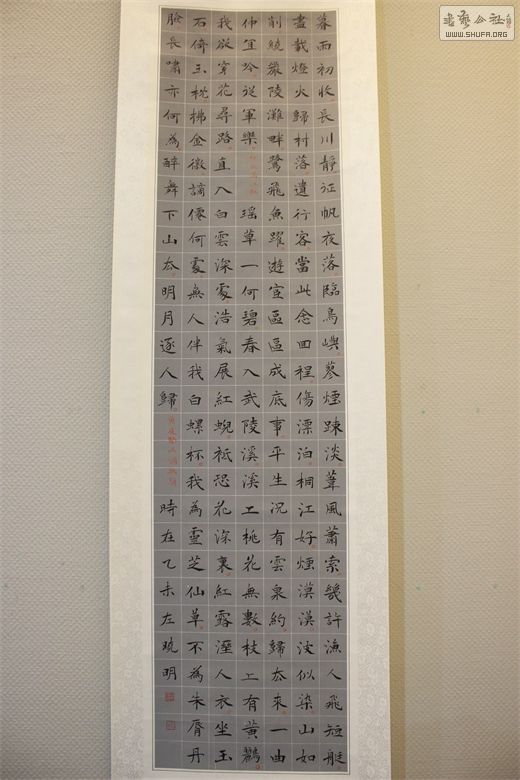 暮雨初收長川靜征帆夜落臨島嶼蓼煙疎淡葦風蕭索幾許漁人飛短艇
盡載燈火歸村落遣行客當此念回程傷漂泊桐江好煙漠漠波似染山如
削繞嚴陵灘畔鷺飛魚躍遊宦區區成底事平生況有雲泉約歸去來一曲
仲宣吟從軍樂 瑤草一何碧春入武陵溪溪上桃花無數枝上有黃鸝
我欲穿花尋路直入白雲深處浩氣展紅蜺祗恐花深裏紅露溼人衣坐玉
石倚玉枕拂金徽謫僊何處無人伴我白螺杯我為靈芝仙草不為朱脣丹
臉長嘯亦何為醉舞下山去明月逐人歸 黃庭堅水調歌頭 時在乙未左曉明
書藝公社
WWW.SHUFA.ORG